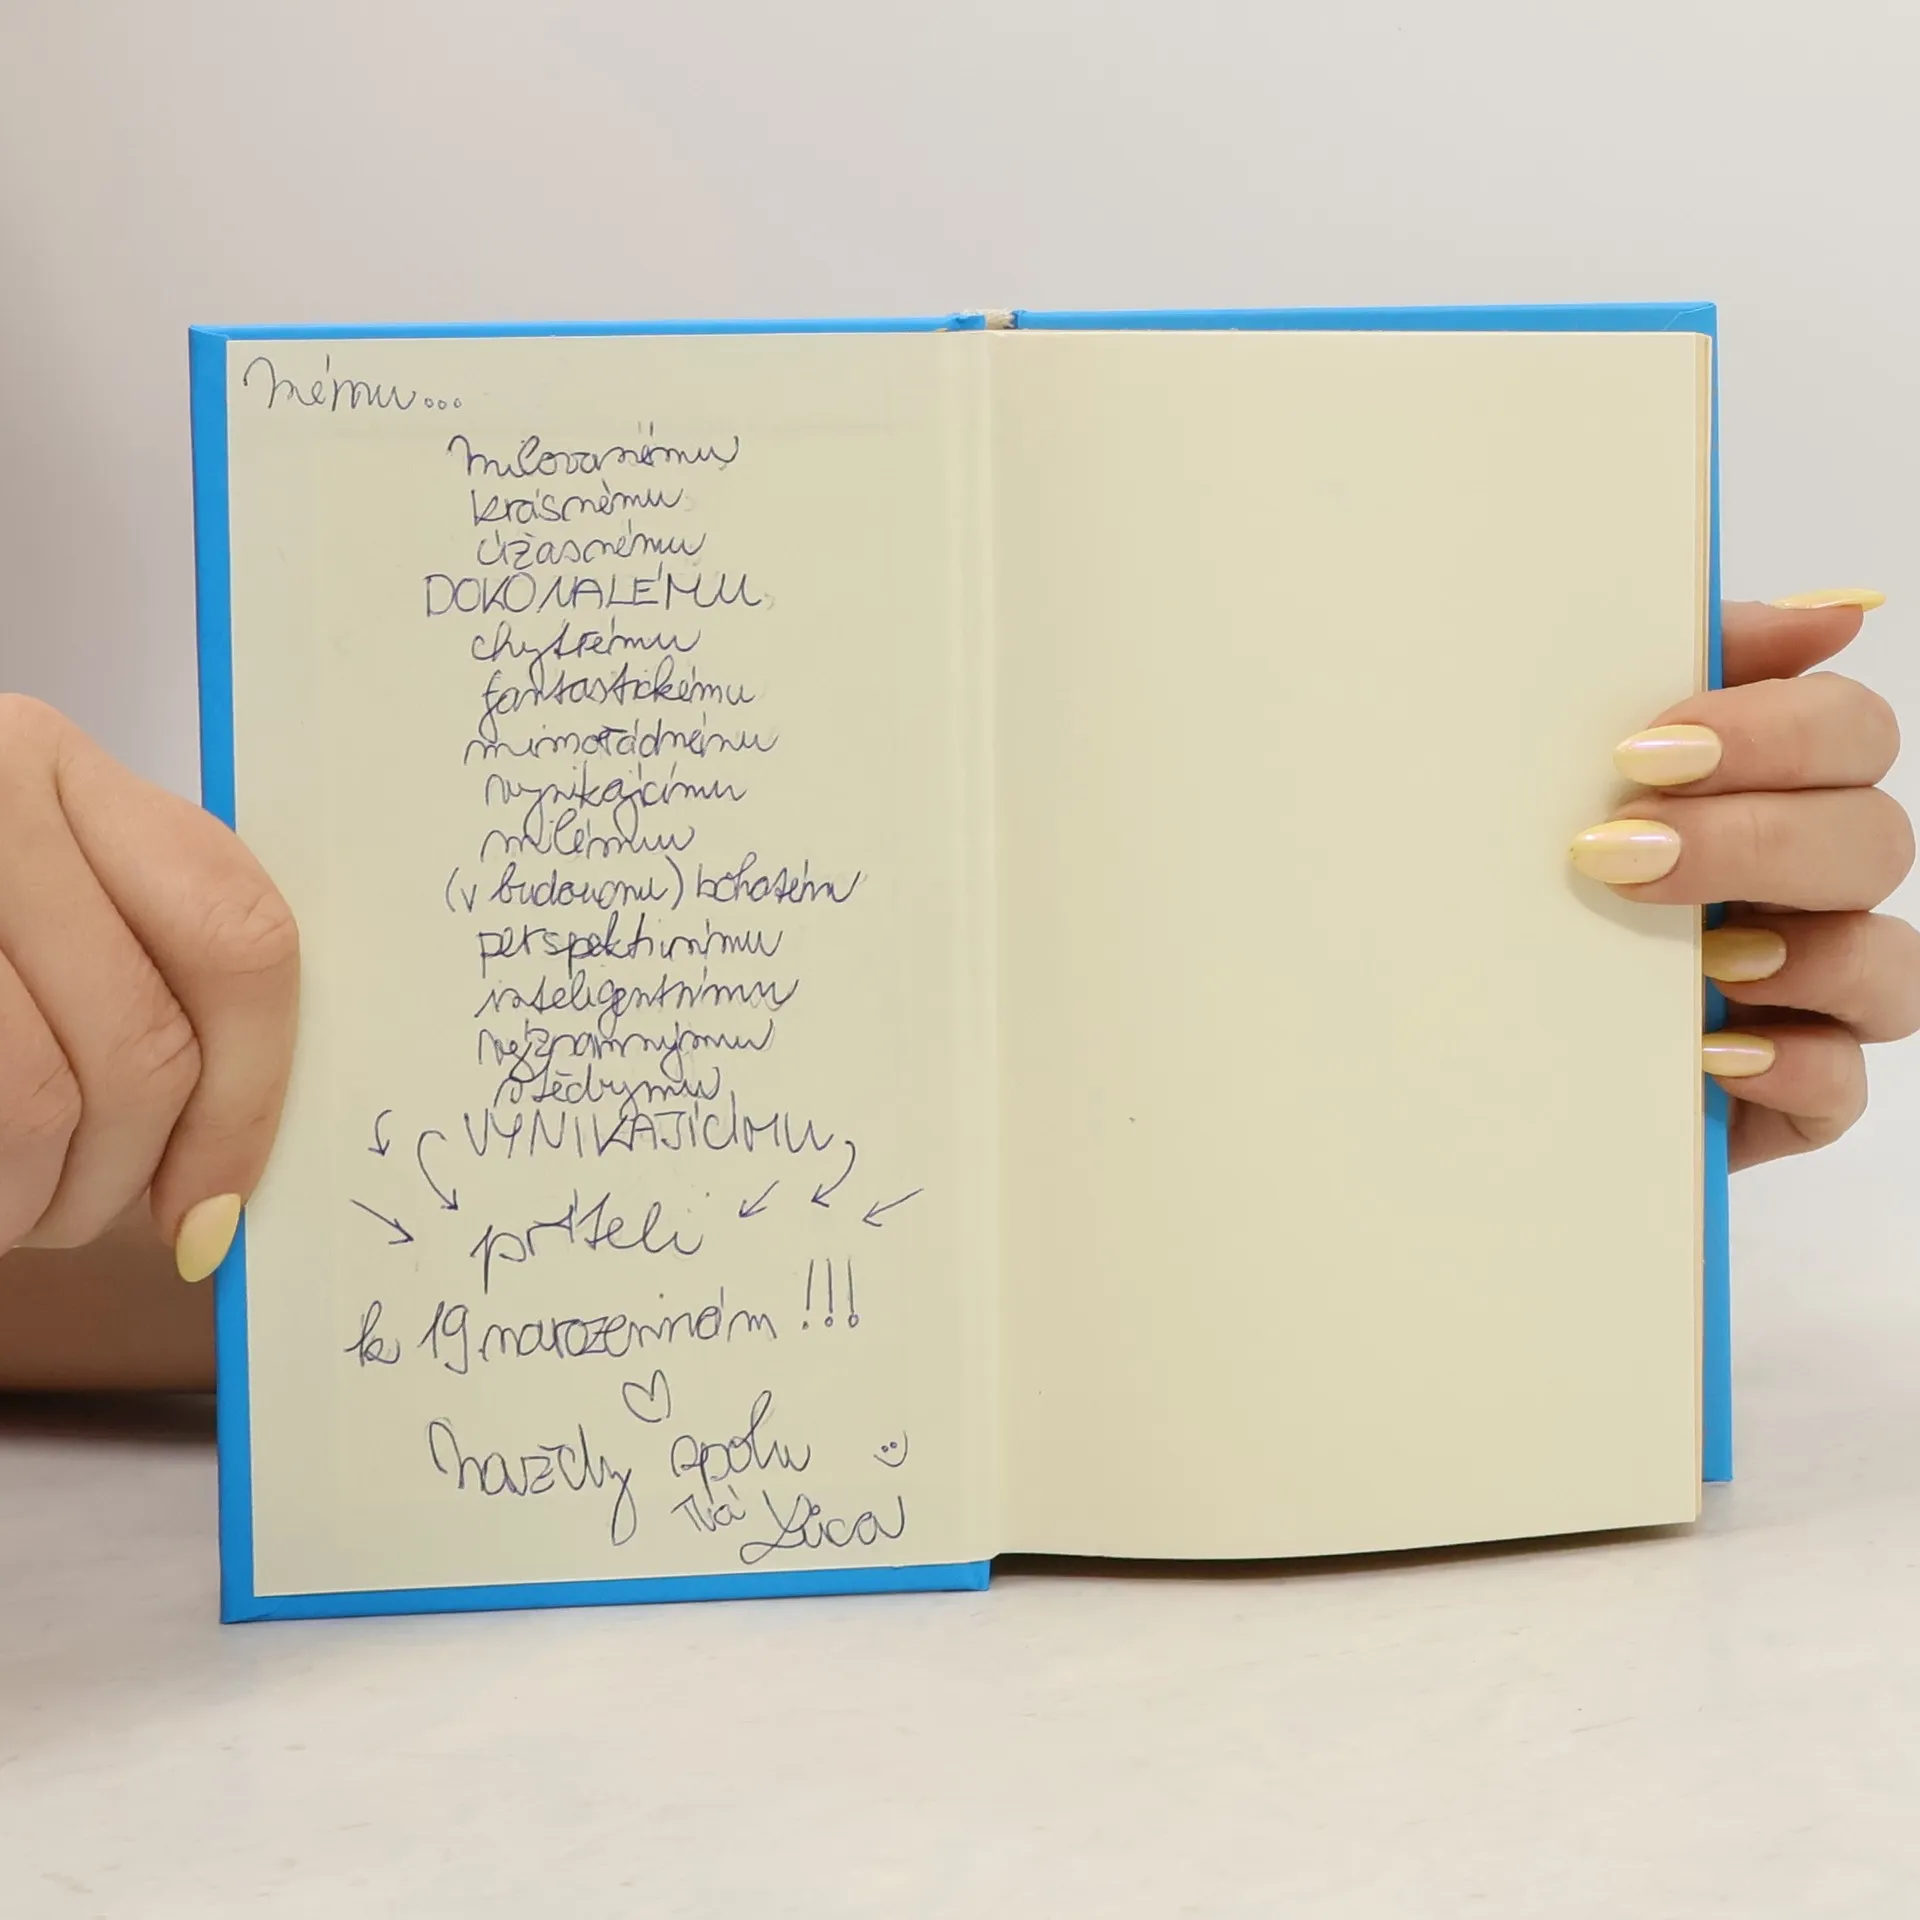 Mému...
milovanému
krásnému
úžasnému
DOKONALÉMU
chytrému
fantastickému
mimořádnému
vynikajícímu
milému
(v budoucnu) bohatému
perspektivnímu
inteligentnímu
významnýmu
štědrýmu
VYNIKAJÍCÍMU
příteli
k 19.narozeninám !!!
Navždy spolu
Tvá Lůca